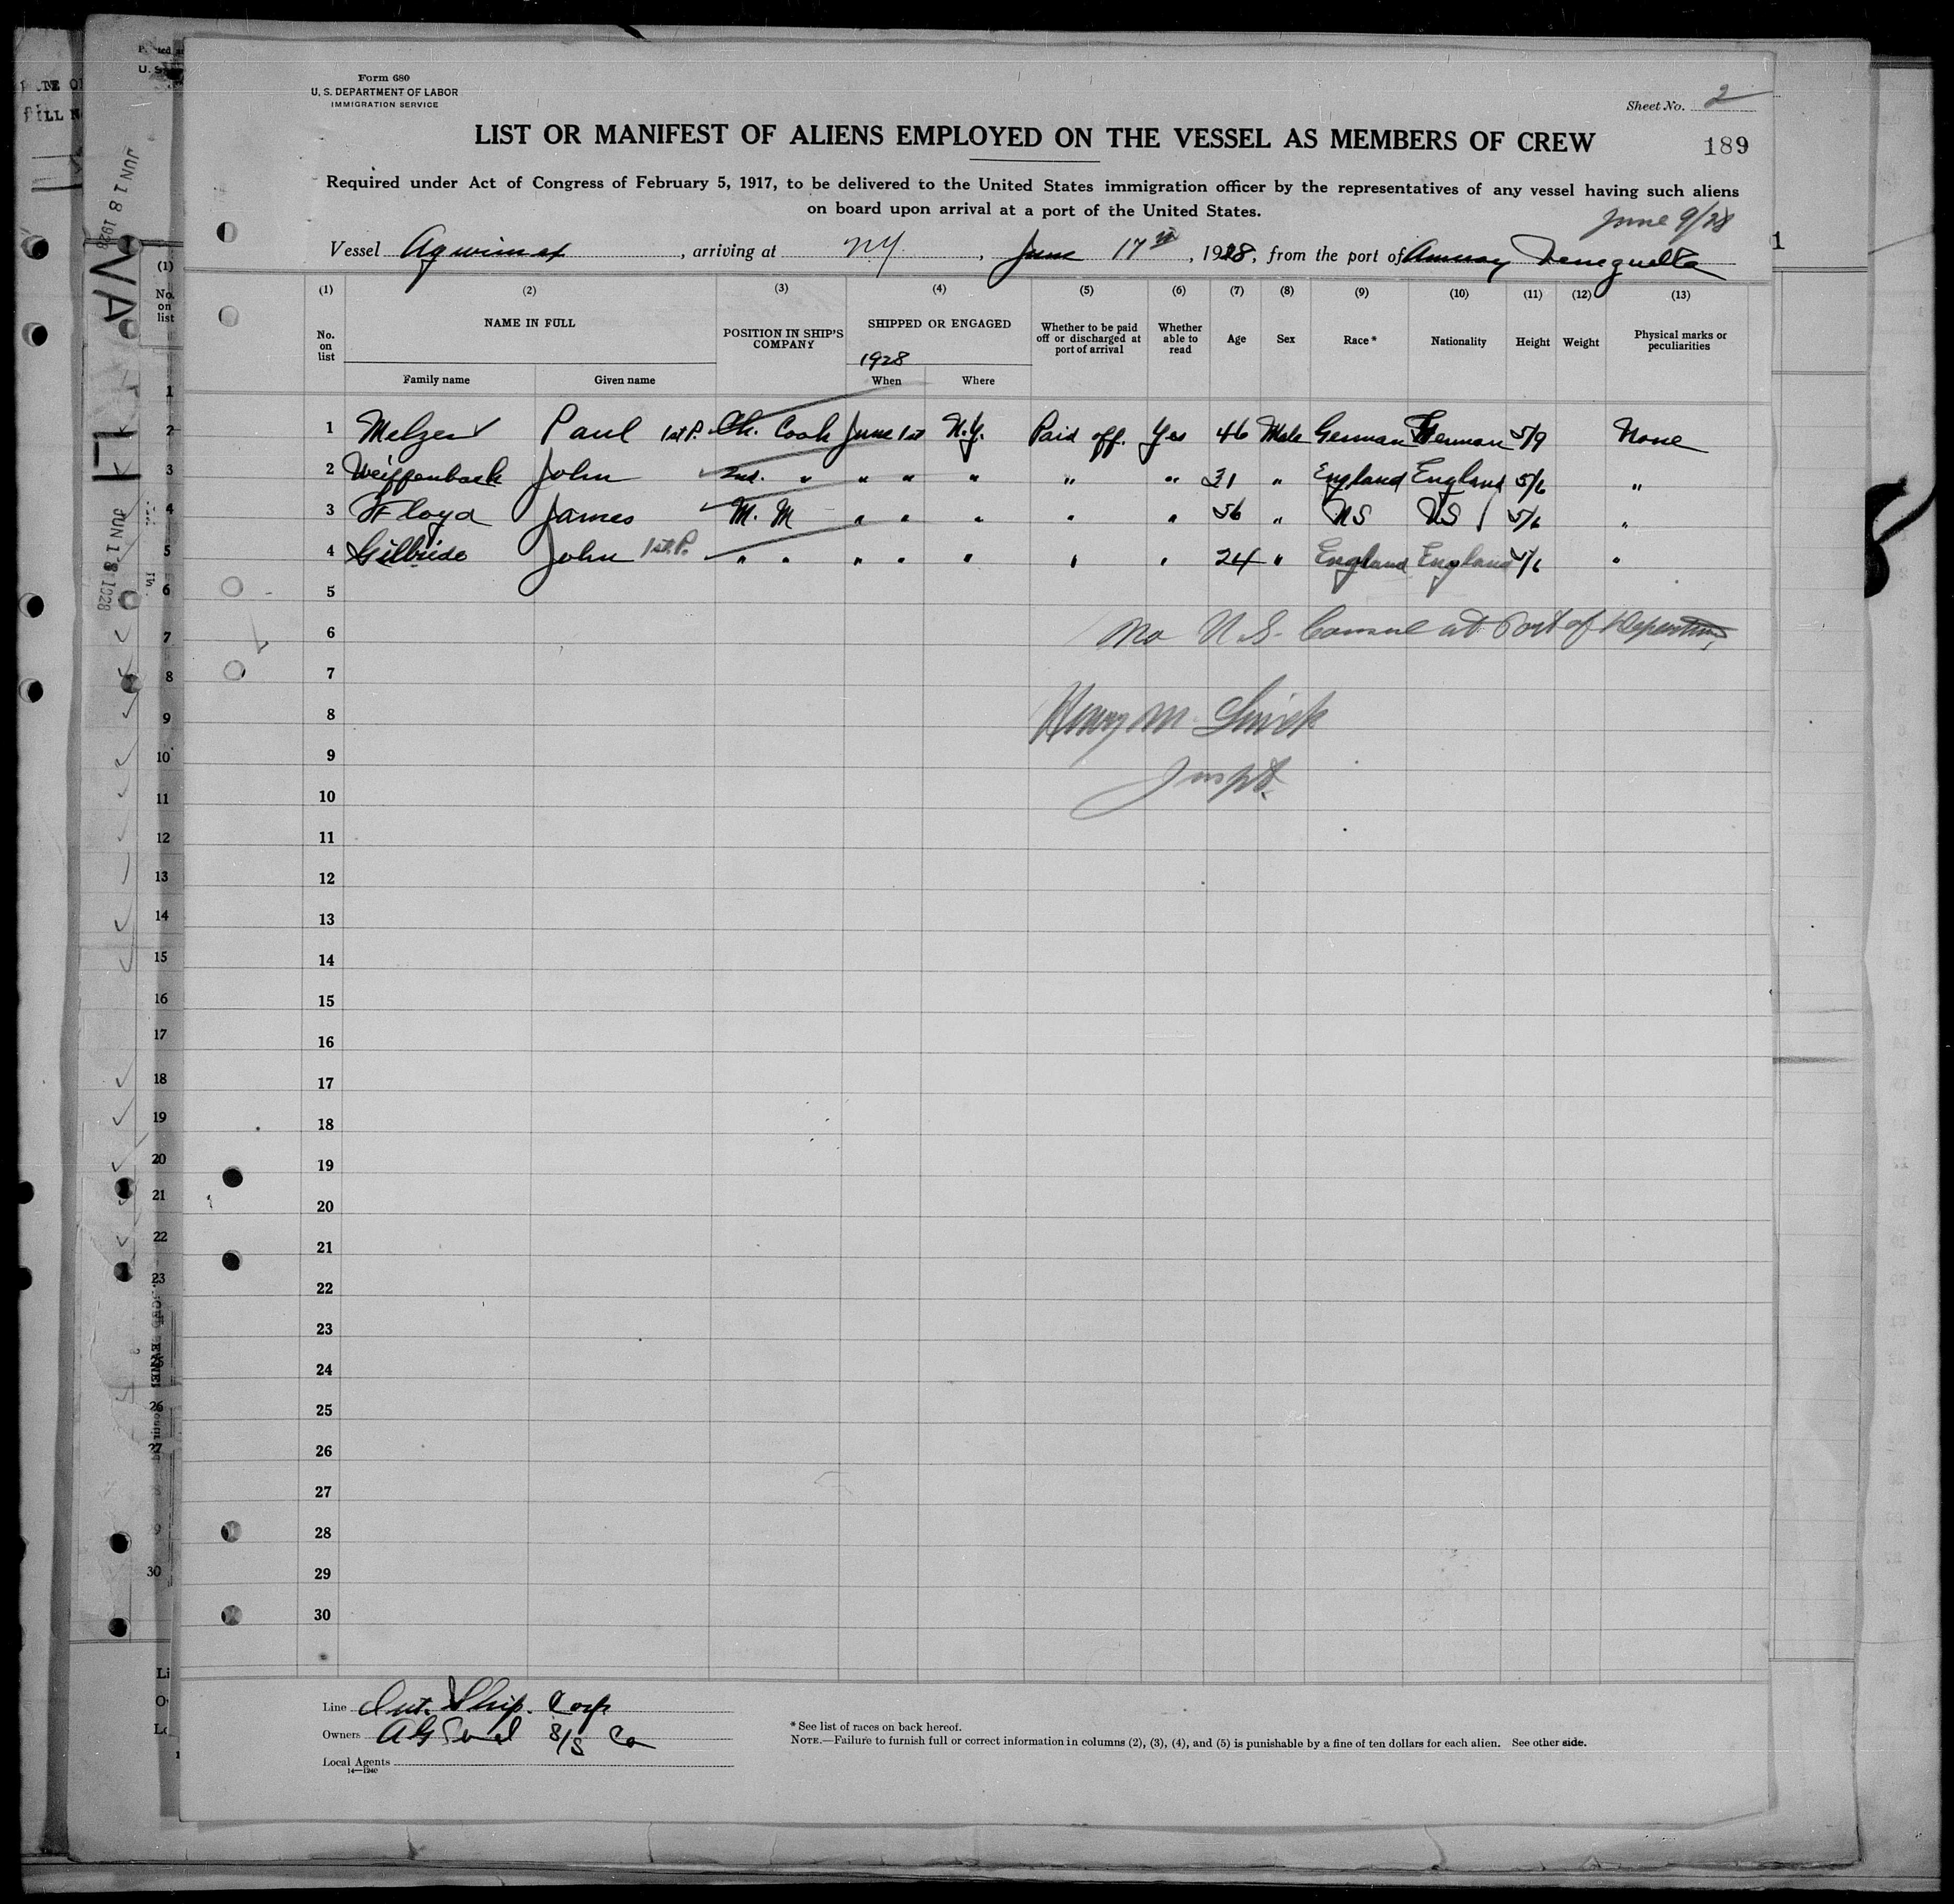 Form 680
U. S. DEPARTMENT OF LABOR
IMMIGRATION SERVICE
Sheet No. 2
LIST OR MANIFEST OF ALIENS EMPLOYED ON THE VESSEL AS MEMBERS OF CREW
189
Required under Act of Congress of February 5, 1917, to be delivered to the United States immigration officer by the representatives of any vessel having such aliens
on board upon arrival at a port of the United States.
June 9/28
Vessel Agwimex, arriving at NY, June 17th, 1928, from the port of
(1) (2) (3) (4) (5) (6) (7) (8) (9) (10) (11) (12) (13)
No. on list NAME IN FULL Family name Given name POSITION IN SHIP'S COMPANY SHIPPED OR ENGAGED 1928 When Where Whether to be paid off or discharged at port of arrival Whether able to read Age Sex Race* Nationality Height Weight Physical marks or peculiarities
1 Melzer Paul 1st P. Ch. Cook June 1st N.Y. Paid off. Yes 46 Male German German 5/9 None
2 Weiffenback John 2nd. " " " " " " 31 " England England 5/6 "
3 Floyd James M. M " " " " " 56 " US US 5/6 "
4 Gilbride John 1st P. " " " " " " " 24 " England England "
5
6 No U.S. Consul at Port of Departure
7
8 Henry M.
9
10 Inspt.
11
12
13
14
15
16
17
18
19
20
21
22
23
24
25
26
27
28
29
30
Line Int. Ship. Corp
Owners S/S Co
Local Agents
14—1240
* See list of races on back hereof.
NOTE.—Failure to furnish full or correct information in columns (2), (3), (4), and (5) is punishable by a fine of ten dollars for each alien. See other side.
JUN 18 1928
JUN 18 1928